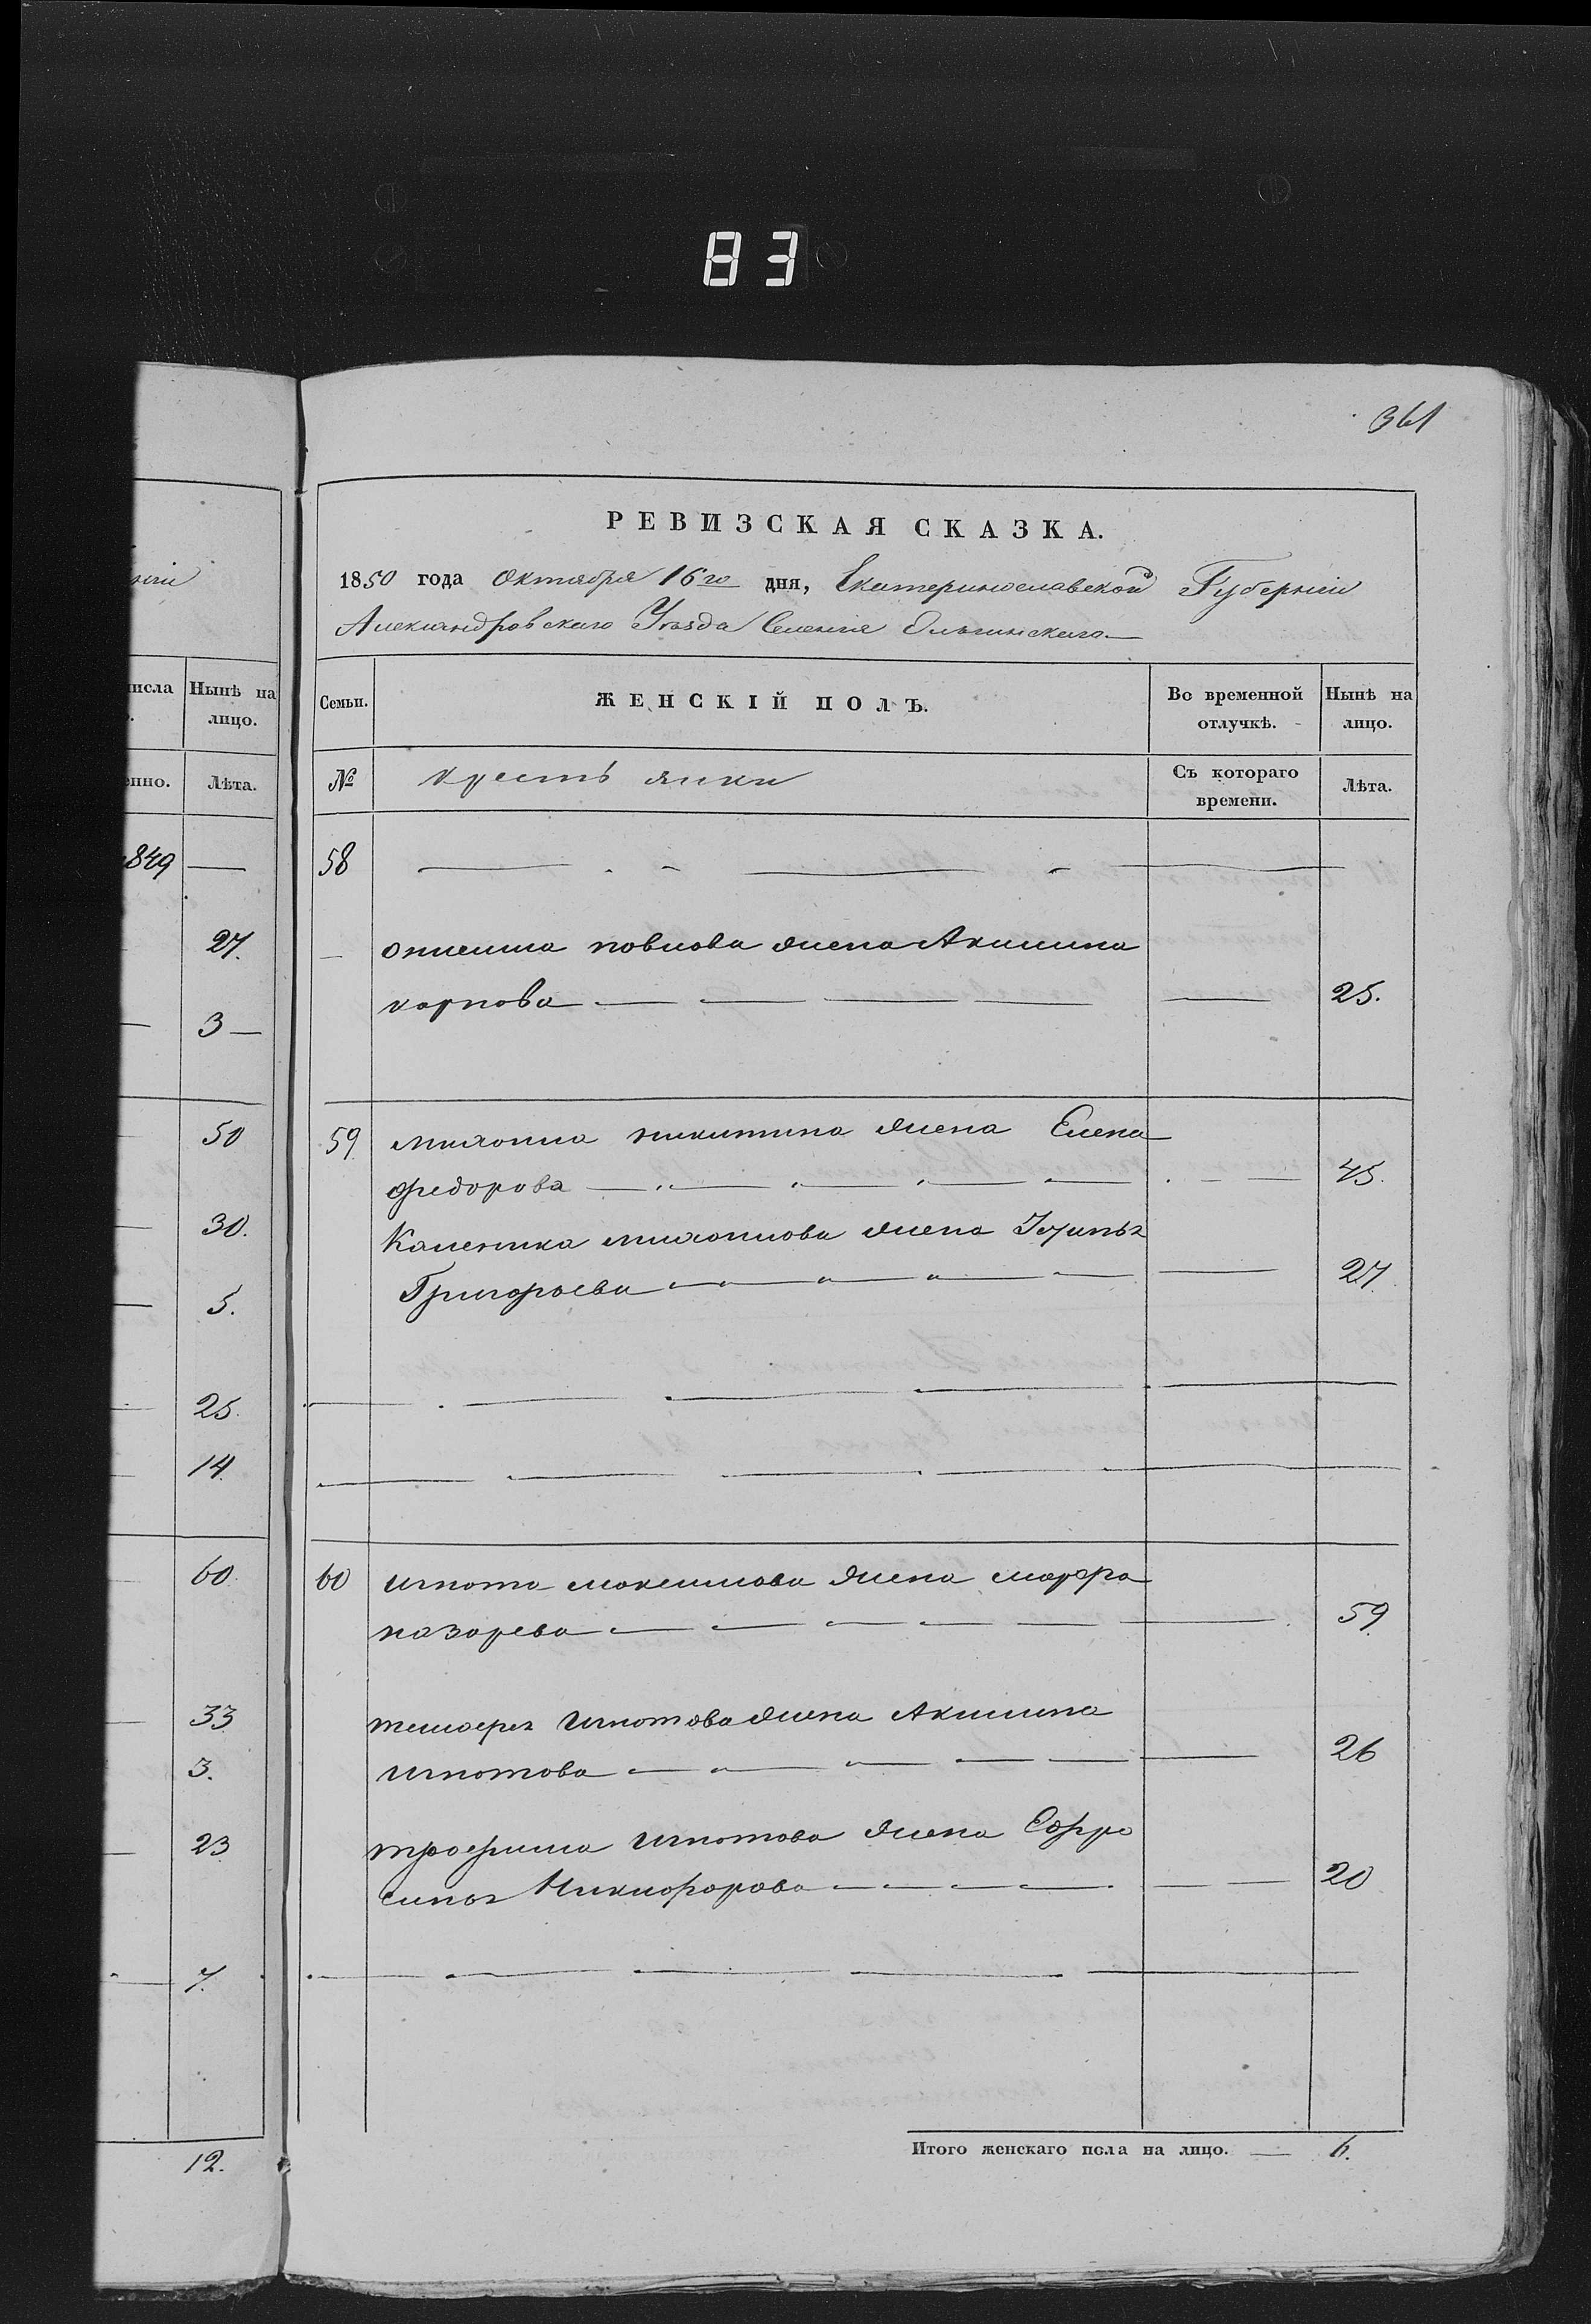 83
361
РЕВИЗСКАЯ СКАЗКА.
1850 года Октября 16го дня, Екатеринославской Губерніи
Александровскаго Уѣзда Селенія Ольгинскаго
ніи
числа
Нынѣ на лицо.
Семьи.
ЖЕНСКІЙ ПОЛЪ.
Во временной отлучкѣ.
Нынѣ на лицо.
енно.
Лѣта.
№
крестьянки
Съ котораго времени.
Лѣта.
849
58
27.
онисима повлова жена Акилина
карпова 25.
3
50
59 михоила никитина жена Елена
федорова 45.
30.
Каленика михоилова жена Ирина
Григорьева 27.
5.
25.
14.
60.
60 игнота максимова жена марфа
назарева 59.
33
тимофея игнотова жена Акилина
3.
игнотова 26
23
трофима игнотова жена Ефро
синья Никифорова 20
7.
12.
Итого женскаго пола на лицо. 6.